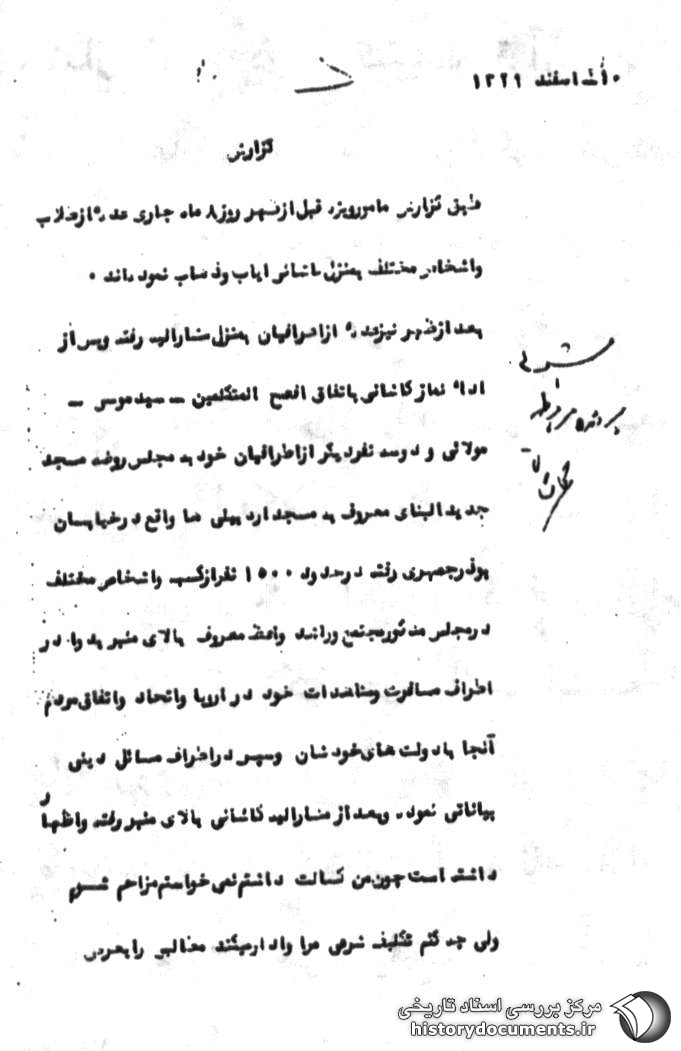 ۱۰ اسفند ۱۳۲۹
گزارش
طبق گزارش مامور ویژه قبل از ظهر روز ۸ ماه جاری عده از طلاب
واشخاص مختلف بمنزل کاشانی ایاب وذهاب نموده‌اند ۰
بعد از ظهر نیز عده از اطرافیان بمنزل مشارالیه رفته وپس از
اداء نماز کاشانی باتفاق افصح المتکلمین ــ سید موسی ــ
مولائی و دوسه نفر دیگر از اطرافیان خود به مجلس روضه مسجد
جدید البنای معروف به مسجد اردبیلی ها واقع در خیابان
بوذرجمهری رفته در حدود ۱۵۰۰ نفر از کسبه واشخاص مختلف
در مجلس مذکور مجتمع وراشد واعظ معروف بالای منبر بود و در
اطراف مسافرت ومشاهدات خود در اروپا واتحاد واتفاق مردم
آنجا با دولت های خودشان وسپس در اطراف مسائل دینی
بیاناتی نمود. وبعد از مشارالیه کاشانی بالای منبر رفته واظهار
داشته است چون من کسالت داشتم نمی خواستم مزاحم شوم
ولی چه کنم تکلیف شرعی مرا وادار میکند مطالبی را بعرض
مرکز بررسی اسناد تاریخی
historydocuments.ir